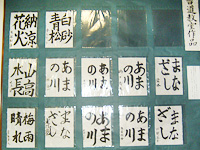 書道教室作品
白砂
青松
納涼
花火
まな
ざし
あま
の川
あま
の川
あま
の川
山高
水長
まな
ざし
まな
ざし
あま
の川
まな
ざし
梅雨
晴れ